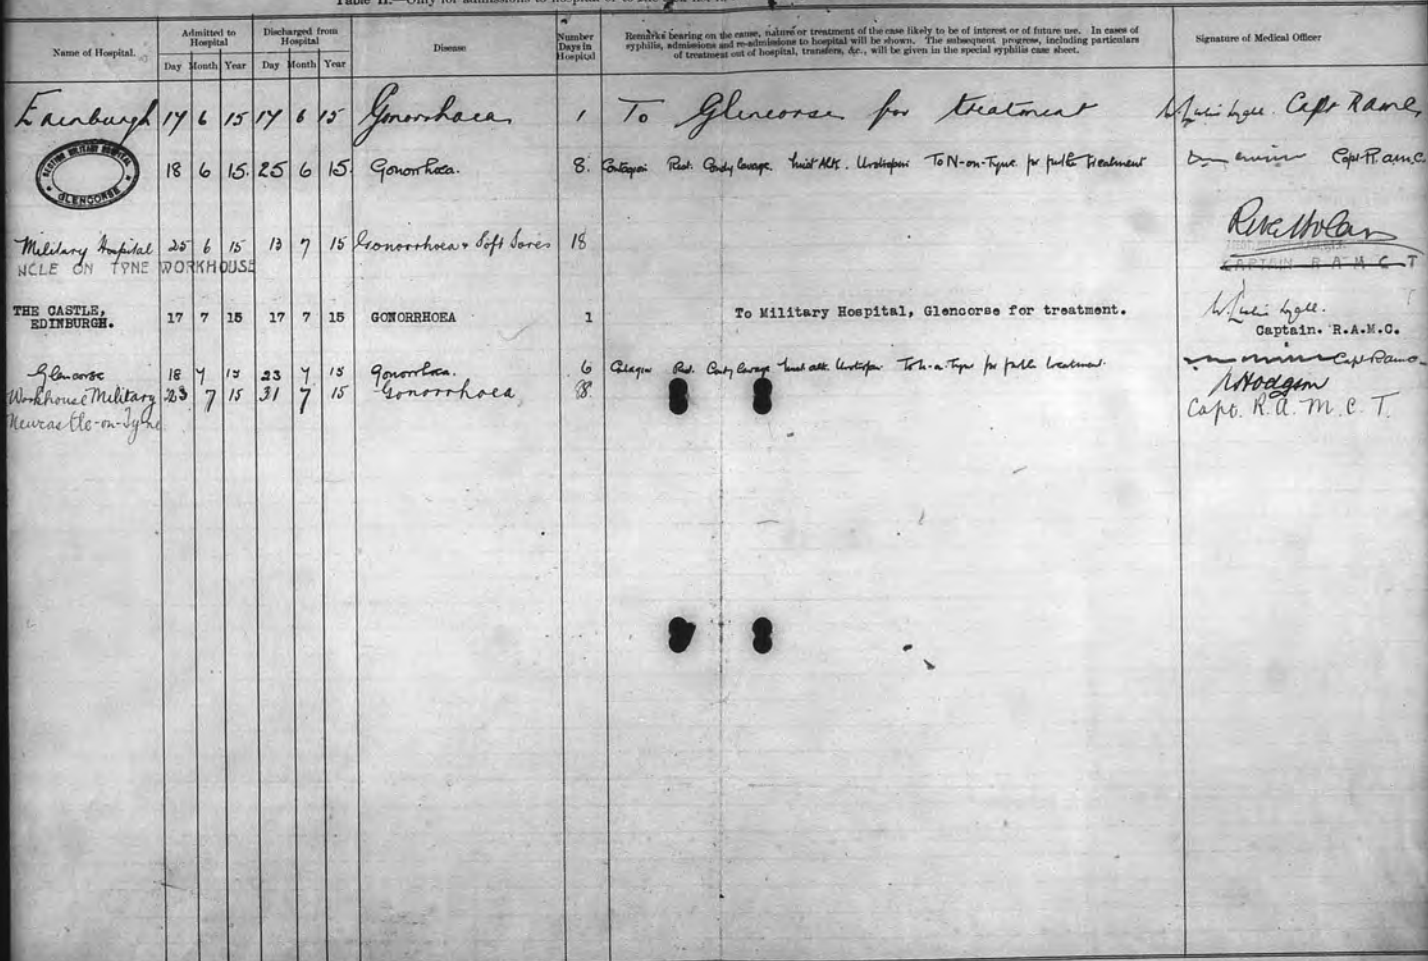 Table II.—Only for admissions to hospital
Name of Hospital.
Admitted to Hospital
Day Month Year
Discharged from Hospital
Day Month Year
Disease
Number Days in Hospital
Remarks bearing on the cause, nature or treatment of the case likely to be of interest or of future use. In cases of
syphilis, admissions and re-admissions to hospital will be shown. The subsequent progress, including particulars
of treatment out of hospital, transfers, &c., will be given in the special syphilis case sheet.
Signature of Medical Officer
Edinburgh 17 6 15 17 6 15 Gonorrhoea 1 To Glencorse for treatment Capt RAMC
SECTION MILITARY HOSPITAL
GLENCORSE
18 6 15. 25 6 15. Gonorrhoea. 8. Rest. Condy lavage. Mist Alk. Urotropin To N-on-Tyne for further treatment Capt. R.a.m.c.
Military Hospital 25 6 15 13 7 15 Gonorrhoea + Soft Sores 18
NCLE ON TYNE WORKHOUSE
CAPTAIN R A M C T
THE CASTLE,
EDINBURGH. 17 7 15 17 7 15 GONORRHOEA 1 To Military Hospital, Glencorse for treatment.
Captain. R.A.M.C.
Glencorse 18 7 15 23 7 15 Gonorrhoea. 6 Rest. Condy lavage Mist alk Urotropin To N-o-Tyne for further treatment. Capt Ramc
Workhouse Military 23 7 15 31 7 15 Gonorrhoea 8. Hodgson
Newcastle-on-Tyne Capt. R.A.M.C.T.